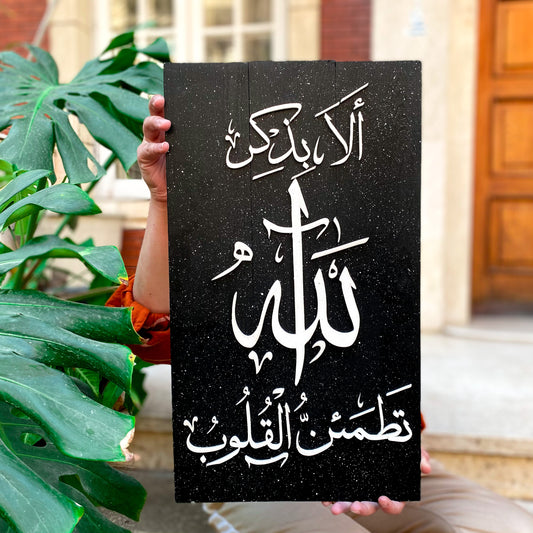 أَلَا بِذِكْرِ
اللّٰهِ
تَطْمَئِنُّ الْقُلُوبُ